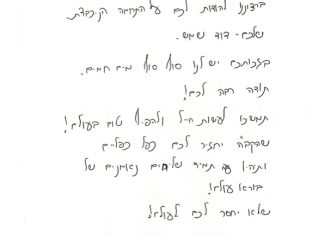 ברצוננו להודות לכם על התרומה הנכבדת
שלכם - דוד שמש.
בזכותכם יש לנו סוף סוף מים חמים.
תודה רבה לכם!
תמשיכו לעשות חיל ולהפיץ טוב בעולם!
שהקב"ה יחזיר לכם כפל כפליים
ותהיו עם תמיד שליחים נאמנים של
בורא עולם!
שלא יחסר לכם לעולם!